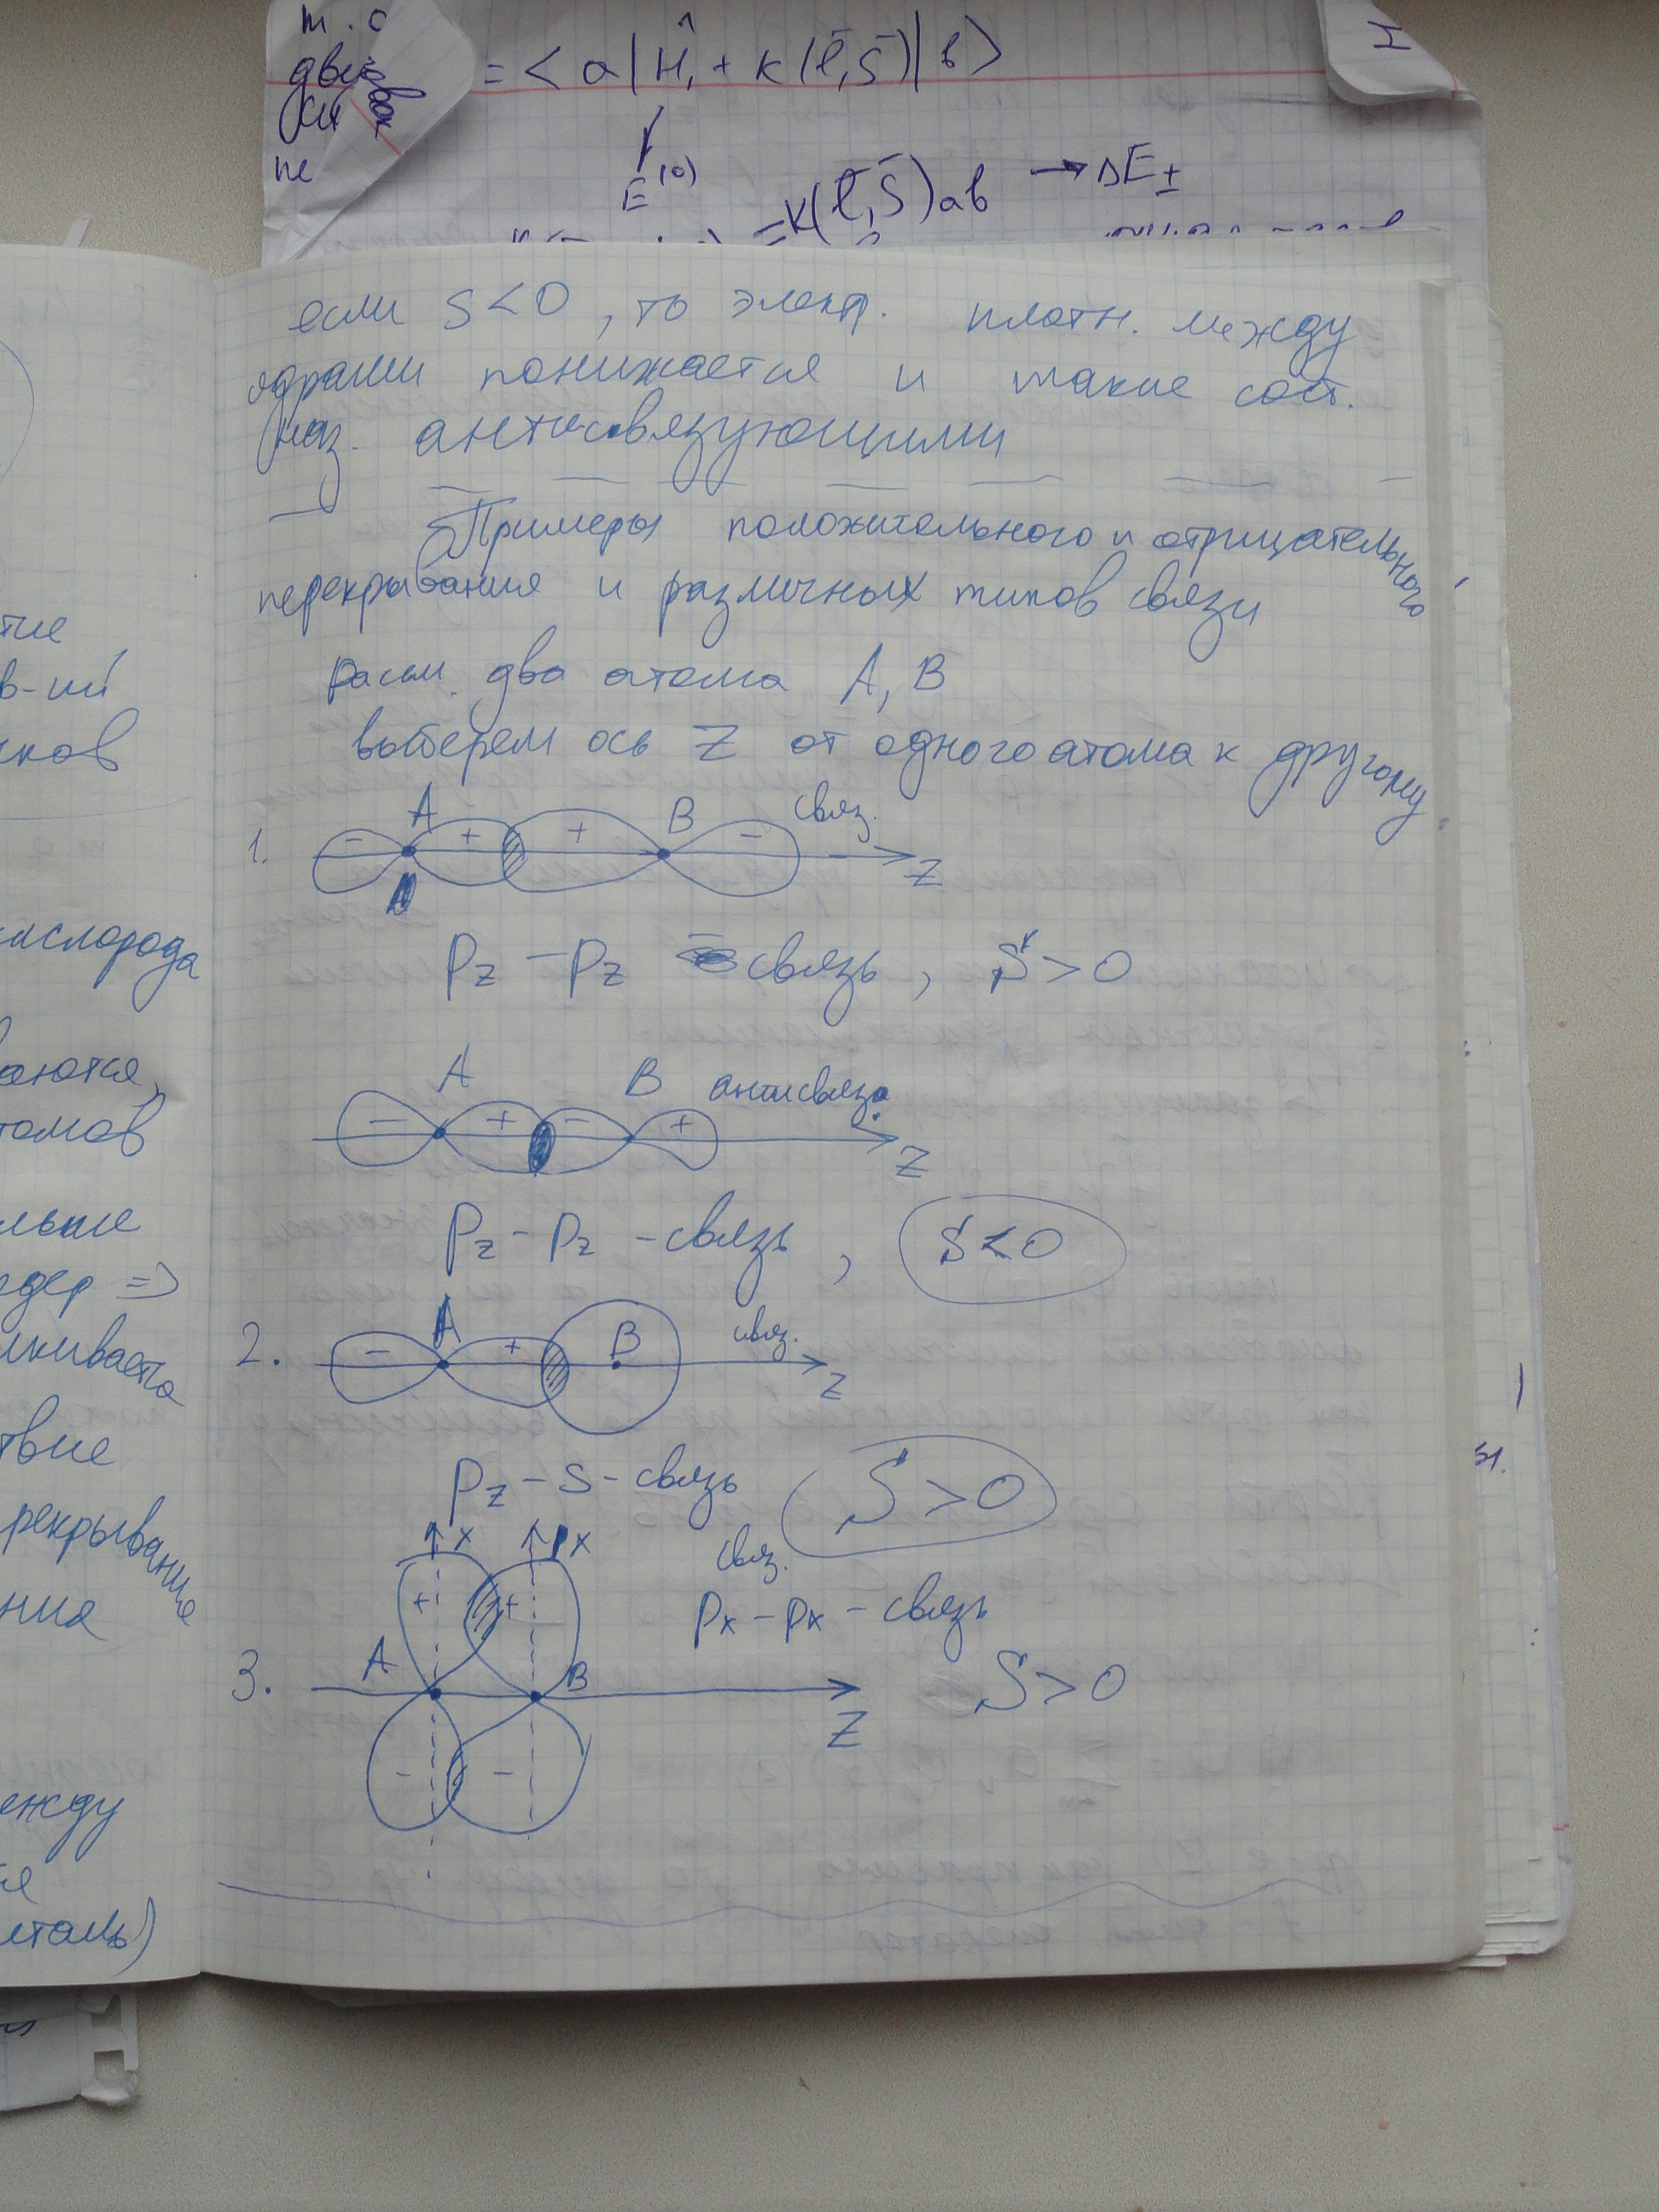 т.с
дву
си
пе
= < a | Ĥ, + к (l̄,s̄) | b >
E⁽⁰⁾
= к(l̄,s̄)ab → ΔE±
если S<0, то электр. плотн. между
ядрами понижается и такие сост.
наз. антисвязующими
Примеры положительного и отрицательного
перекрывания и различных типов связи
рассм. два атома A, B
выберем ось Z от одного атома к другому
1. − A + + B − связ. Z
Pz − Pz − связь, S>0
− A + − B + антисвяз. Z
Pz − Pz − связь, S<0
2. − A + B связ. Z
Pz − S − связь S>0
x x
+ + связ.
Px − Px − связь
3. A B Z S>0
− −
тие
в-ий
ков
кислорода
аются,
томов
льше
ядер =>
лкивается
твие
рекрывание
ния
ежду
ся
еталь)
51.